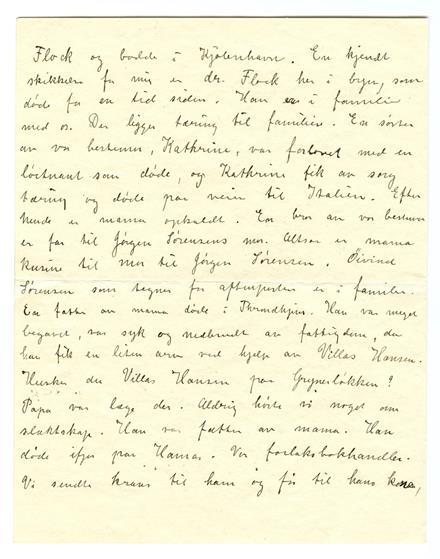 Flock og bodde i Kjøbenhavn. En kjendt
skikkelse for mig er dr. Flock her i byen, som
døde for en tid siden. Han er i familie
med os. Der ligger tæring til familien. En søster
av vor bestemor, Kathrine, var forlovet med en
løitnant som døde, og Kathrine fik av sorg
tæring og døde paa veien til Italien. Efter
hende er mama opkaldt. En bror av vor bestemor
er far til Jørgen Sørensens mor. Altsaa er mama
kusine til mor til Jørgen Sørensen. Öivind
Sørensen som tegner for aftenposten er i familie.
En fætter av mama døde i Throndhjem. Han var meget
begavet, var syk og nedbrudt av fattigdom, da
han fik en liten arv ved hjelp av Villas Hansen.
Husker du Villas Hansen paa Grynerløkken?
Papa var læge der. Aldrig hørte vi noget om
slektskap. Han var fætter av mama. Han
døde ifjor paa Hamar. Var forlaksbokhandler.
Vi sendte krans til ham og fik til hans kone,